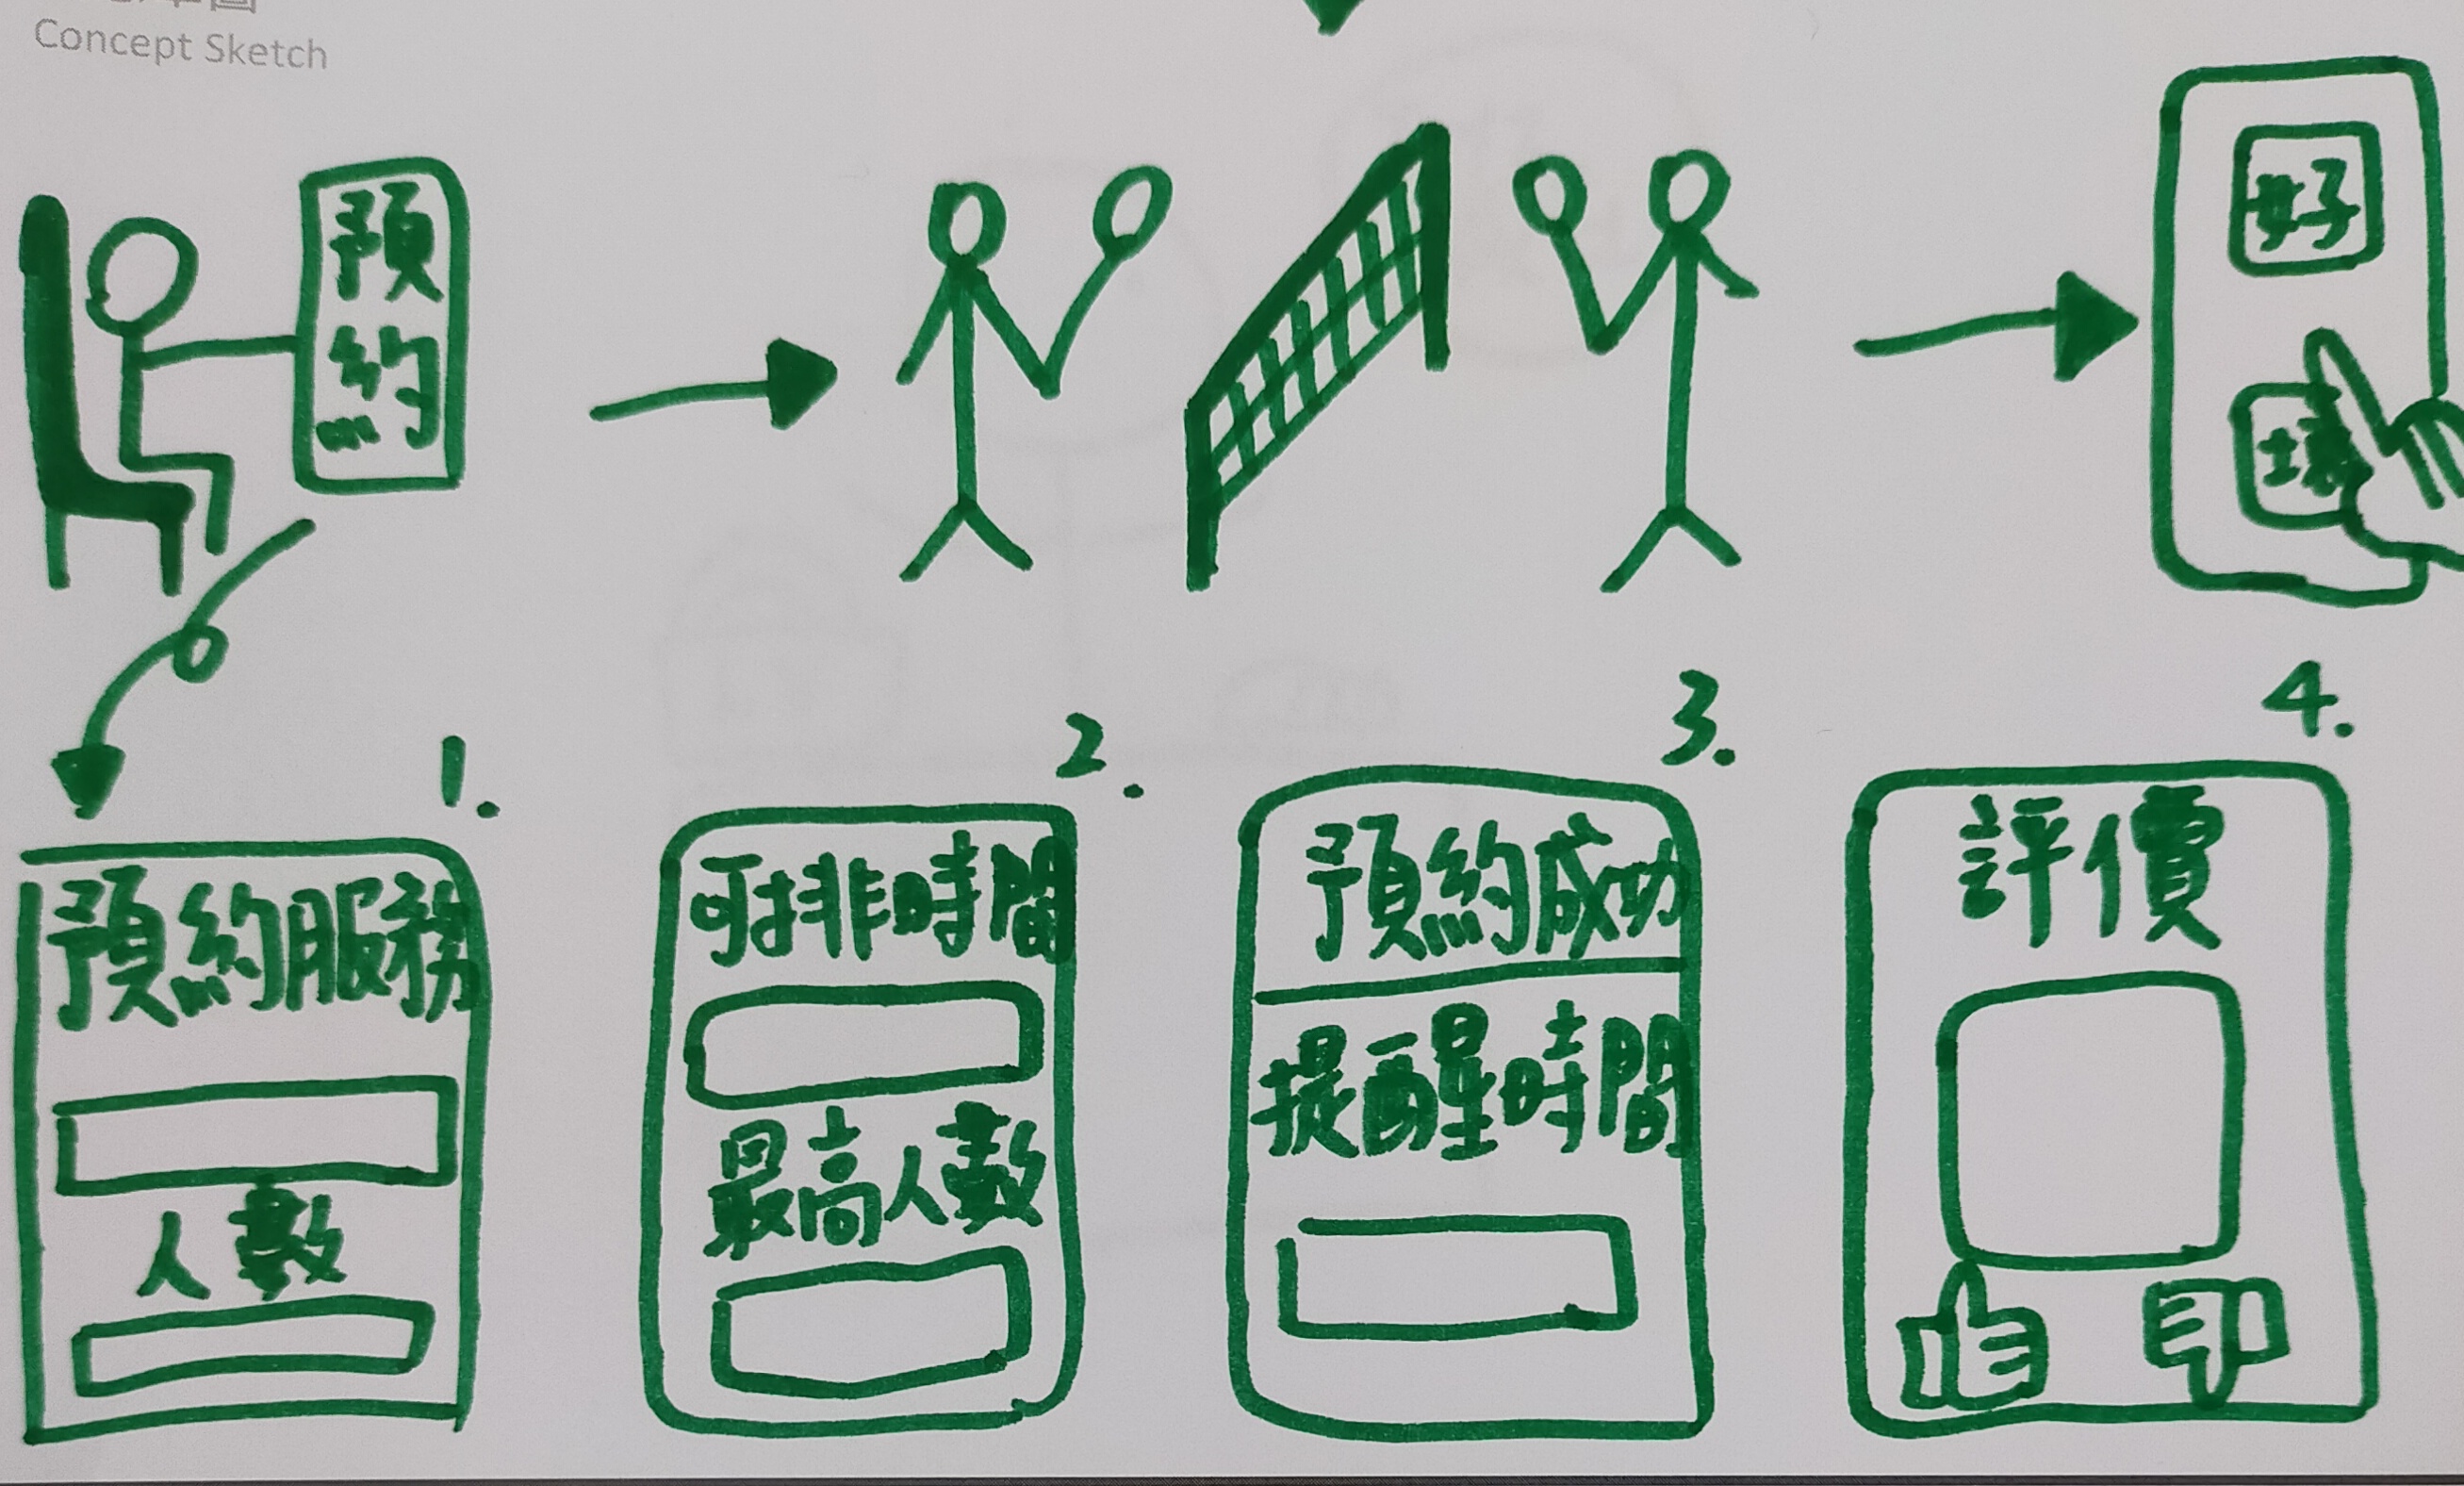 Concept Sketch
預
約
好
壞
1.
2.
3.
4.
預約服務
人數
可排時間
最高人數
預約成功
提醒時間
評價